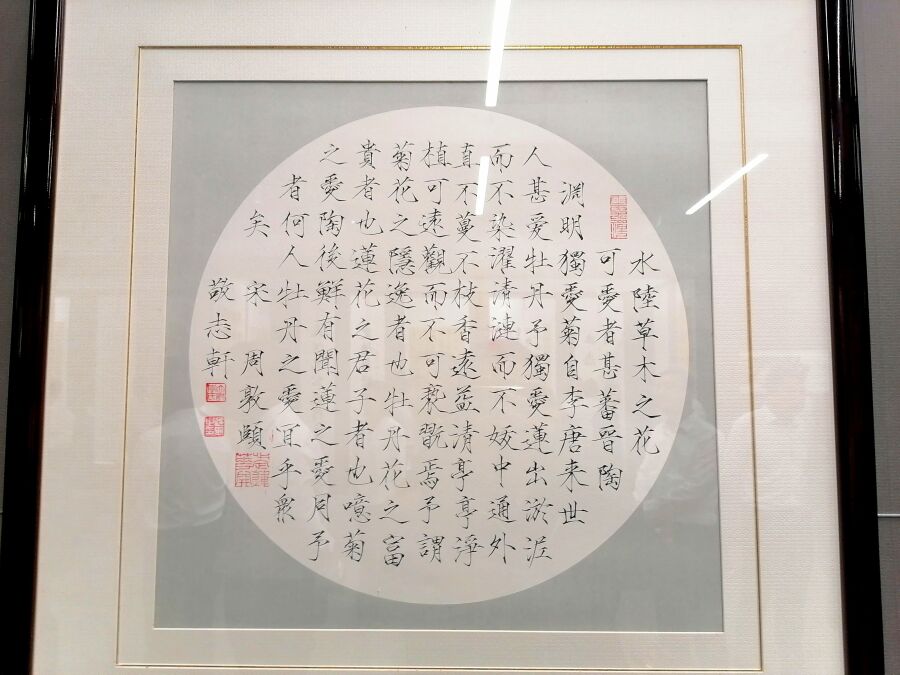 水陸草木之花
可愛者甚蕃晉陶
淵明獨愛菊自李唐来世
人甚愛牡丹予獨愛蓮出淤泥
而不染濯清漣而不妖中通外
直不蔓不枝香遠益清亭亭淨
植可遠觀而不可褻翫焉予謂
菊花之隱逸者也牡丹花之富
貴者也蓮花之君子者也噫菊
之愛陶後鮮有聞蓮之愛同予
者何人牡丹之愛宜乎衆
矣 宋 周敦頤
敬志軒